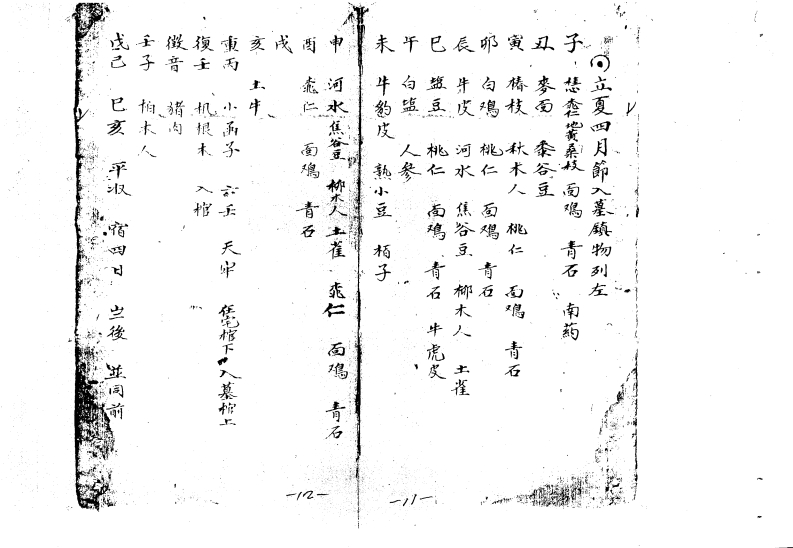 ⊙立夏四月節入墓鎮物列左
子 桃仁 地黄 桑枝 面鴻 青石 南药
丑 麥面 黍谷豆
寅 椿枝 秋木人 桃仁 面鴻 青石
卯 白鴻 桃仁 面鴻 青石
辰 牛皮 河水 焦谷豆 柳木人 土雀
巳 盐豆 桃仁 面鴻 青石 牛虎皮
午 白盐 人參
未 牛豹皮 熟小豆 栢子
-11-
申 河水 焦谷豆 柳木人 土雀 桃仁 面鴻 青石
酉 桃仁 面鴻 青石
戌
亥 土牛
重丙 小 子 六壬 天牢 在宅棺下 入墓棺上
復壬 根木 入棺
徵音 猪肉
壬子 栢木人
戊己 巳亥 平收 宿四日 後 並同前
-12-